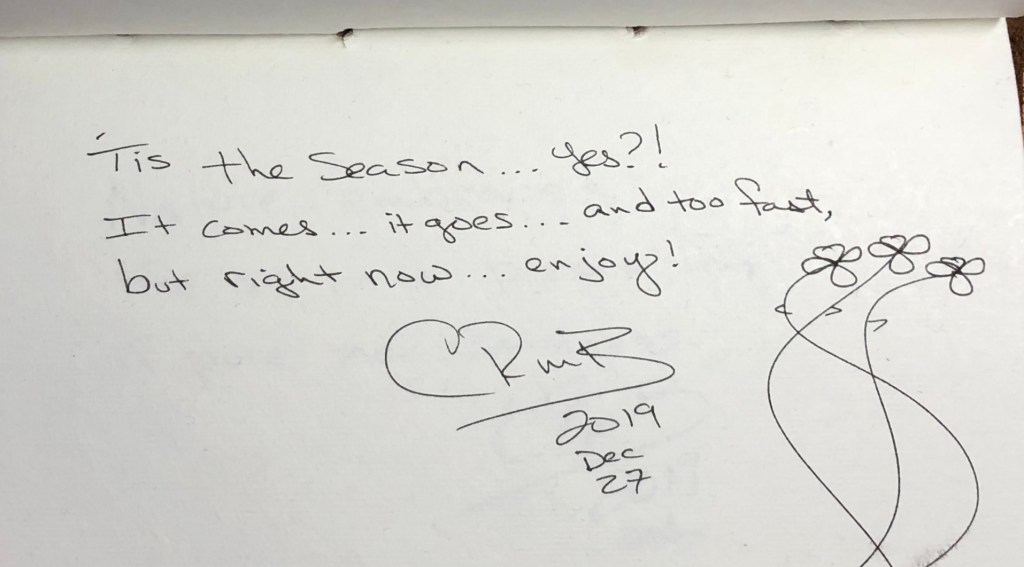 'Tis the Season... yes?!
It comes... it goes... and too fast,
but right now... enjoy!
CRmB
2019
Dec
27